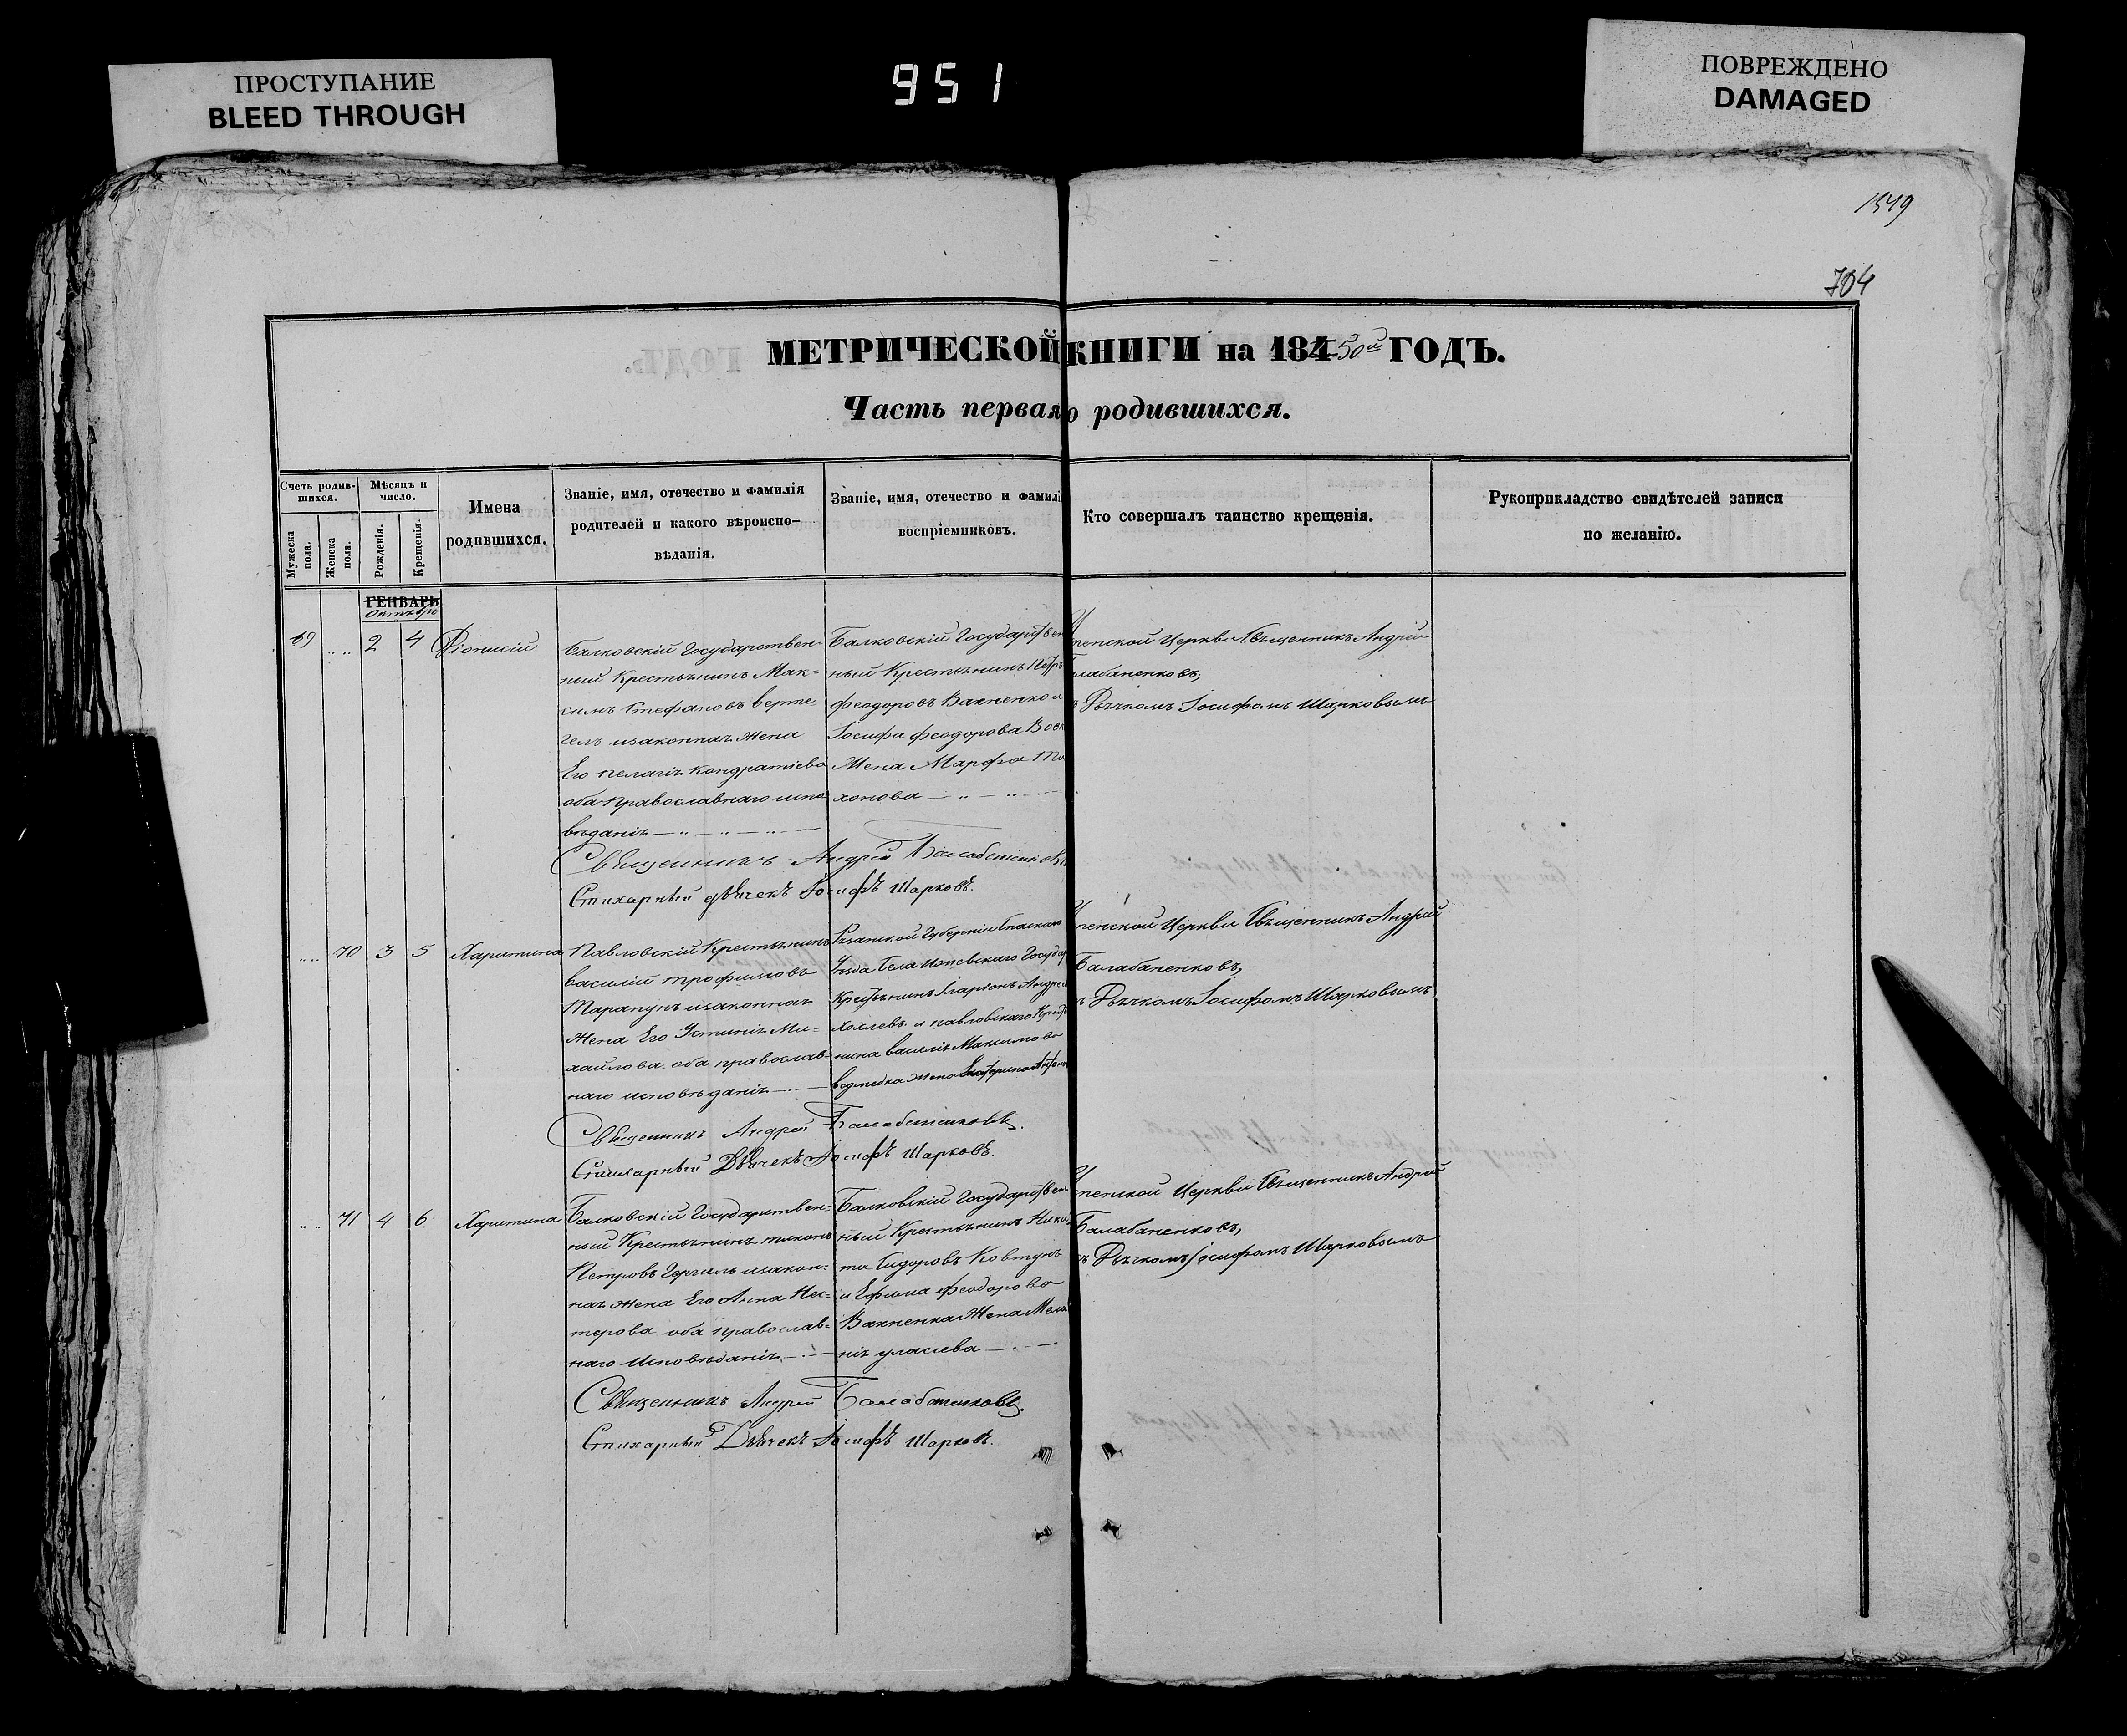 ПРОСТУПАНИЕ
BLEED THROUGH
951
ПОВРЕЖДЕНО
DAMAGED
1549
704
МЕТРИЧЕСКОЙ КНИГИ на 184 50й ГОДЪ.
Часть первая о родившихся.
Счетъ родившихся.
Мужеска пола.
Женска пола.
Мѣсяцъ и число.
Рожденія.
Крещенія.
Имена
родившихся.
Званіе, имя, отечество и фамилія
родителей и какого вѣроиспо-
вѣданія.
Званіе, имя, отечество и фамилі
воспріемниковъ.
Кто совершалъ таинство крещенія.
Рукоприкладство свидѣтелей записи
по желанію.
ГЕНВАРЬ
69 2 4 Діонисій
Балковскій Государствен-
ный Крестьянинъ Мак-
симъ Стефановъ верте
гелъ изаконная жена
Его пелагія Кондратіева
оба православнаго испо
вѣданія
Балковскій Государствен
ный Крестьянинъ Петръ
Феодоровъ Вакненко и
Іосифа Феодорова
Жена Марфа
хонова
пенской Церкви Священникъ Андрей
лабаненковъ,
Дьячкомъ Іосифомъ Шарковымъ
Священникъ Андрей Балабаненковъ
Стихарный дьячекъ Іосифъ Шарковъ.
70 3 5 Харитина
Павловскій Крестьянинъ
василій трофимовъ
Тарапунъ изаконная
Жена Его Устинія Ми-
хайлова оба православ-
наго исповѣданія
Рязанской Губерніи Спаскаго
Уѣзда Села Ижевскаго Государ
Крестьянинъ Іларіонъ Андрее
Хохлевъ и павловскаго Крестья
нина василія Максимова
ведмедка жена Екатерина
пенской Церкви Священникъ Андрей
Балабаненковъ,
Дьячкомъ Іосифомъ Шарковымъ
Священникъ Андрей Балабаненковъ.
Стихарный Дьячекъ Іосифъ Шарковъ.
71 4 6 Харитина
Балковскій Государствен-
ный Крестьянинъ тихонъ
Петровъ изакон-
ная жена Его Анна Нес-
терова оба православ-
наго Исповѣданія
Балковскій Государствен
ный Крестьянинъ Ники
та Сидоровъ Ковтунъ
и Ефима Феодорова
Вакненка Жена Мела
нія уласиева
пенской Церкви Священникъ Андрей
Балабаненковъ,
Дьячкомъ Іосифомъ Шарковымъ
Священникъ Андрей Балабаненковъ.
Стихарный Дьячекъ Іосифъ Шарковъ.